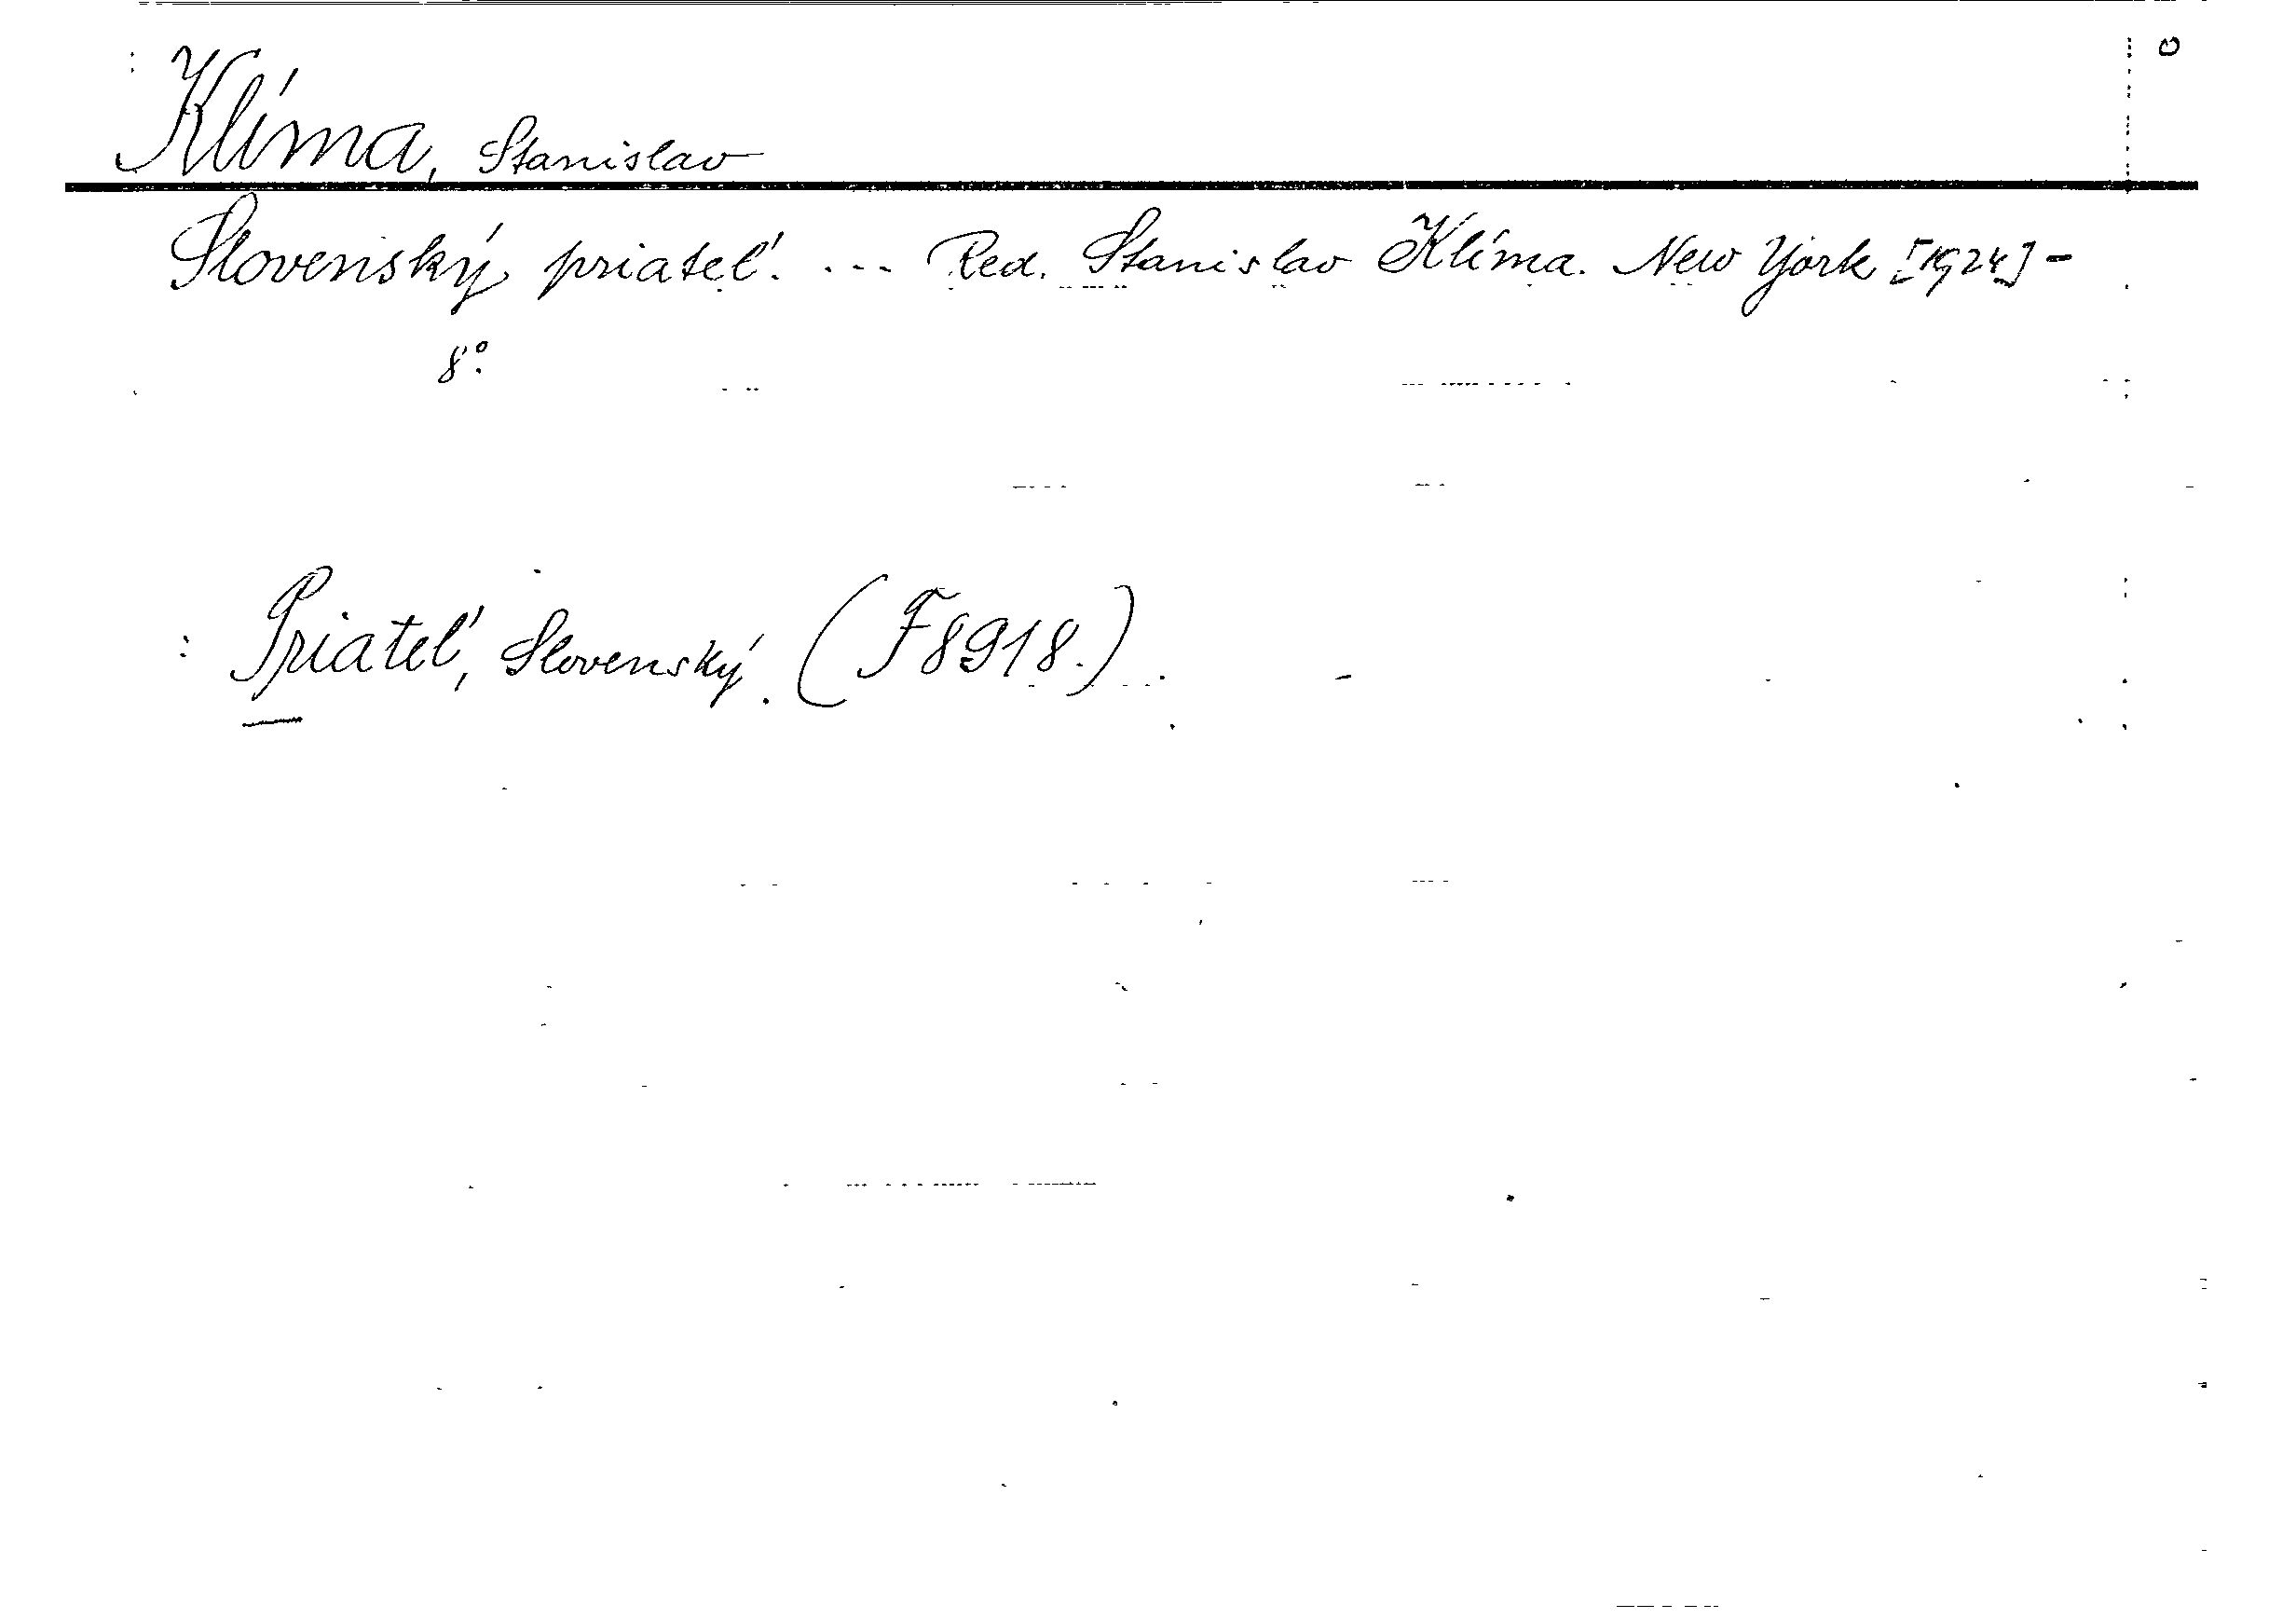 Klíma, Stanislav
Slovenský priateľ. ... Red. Stanislav Klíma. New York [1924] -
8°.
: Priateľ, Slovenský. (F8918.)